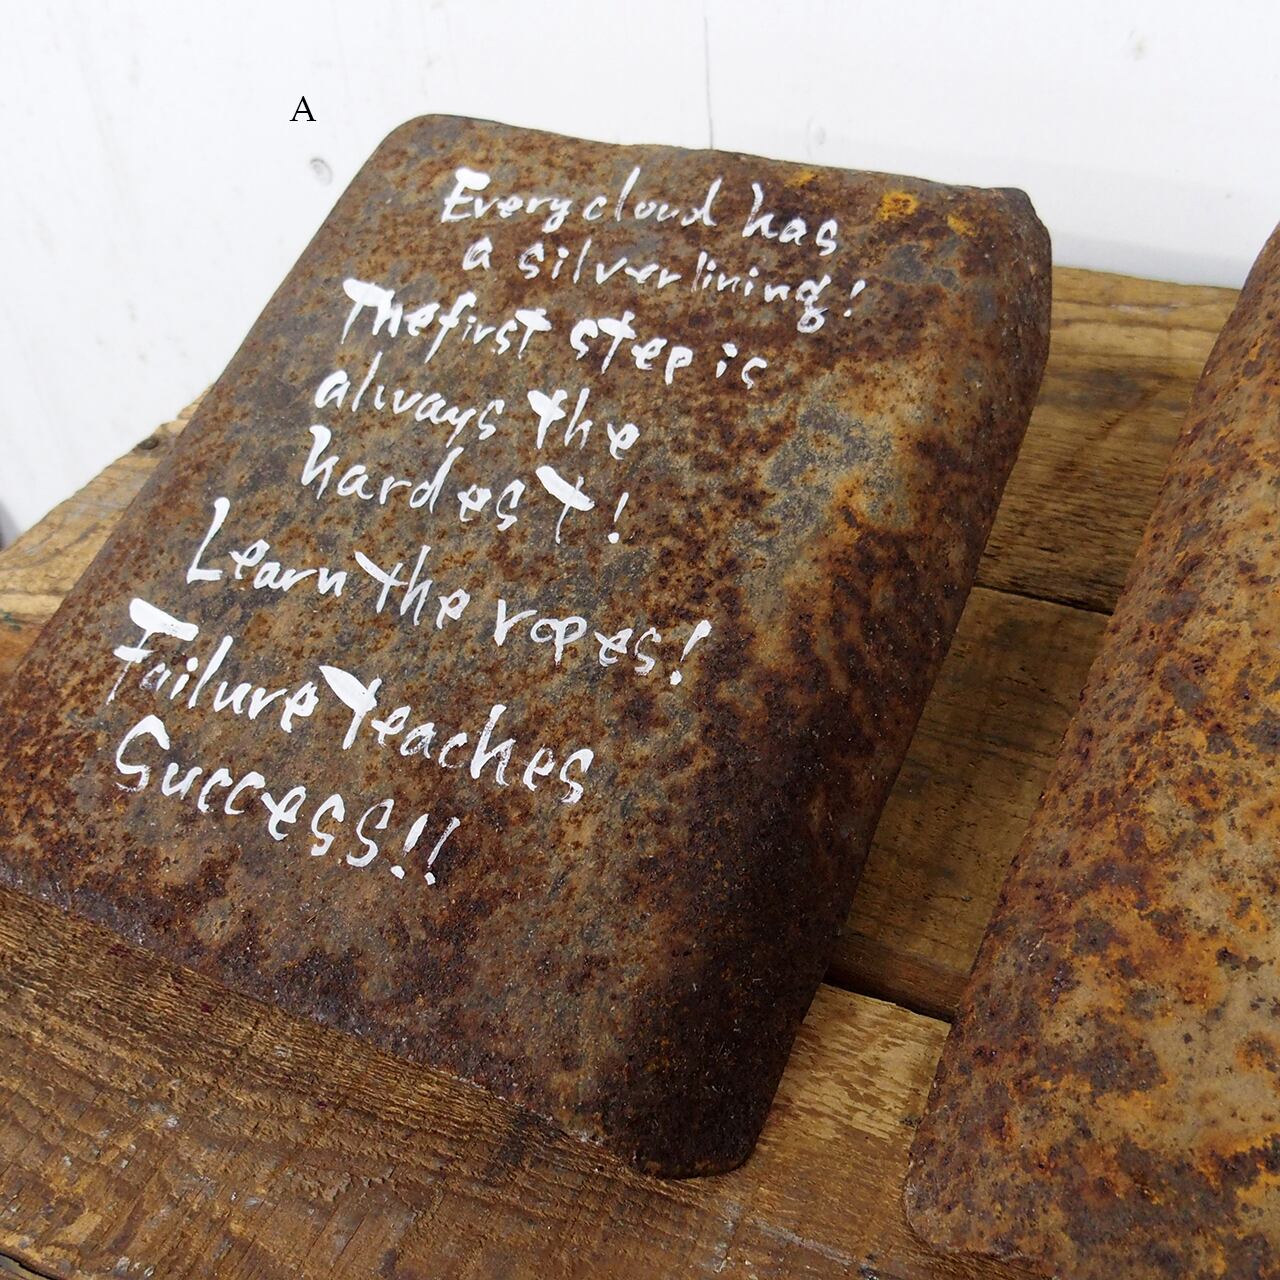 A
Every cloud has
a silver lining!
The first step is
always the
hardest!
Learn the ropes!
Failure teaches
Success!!